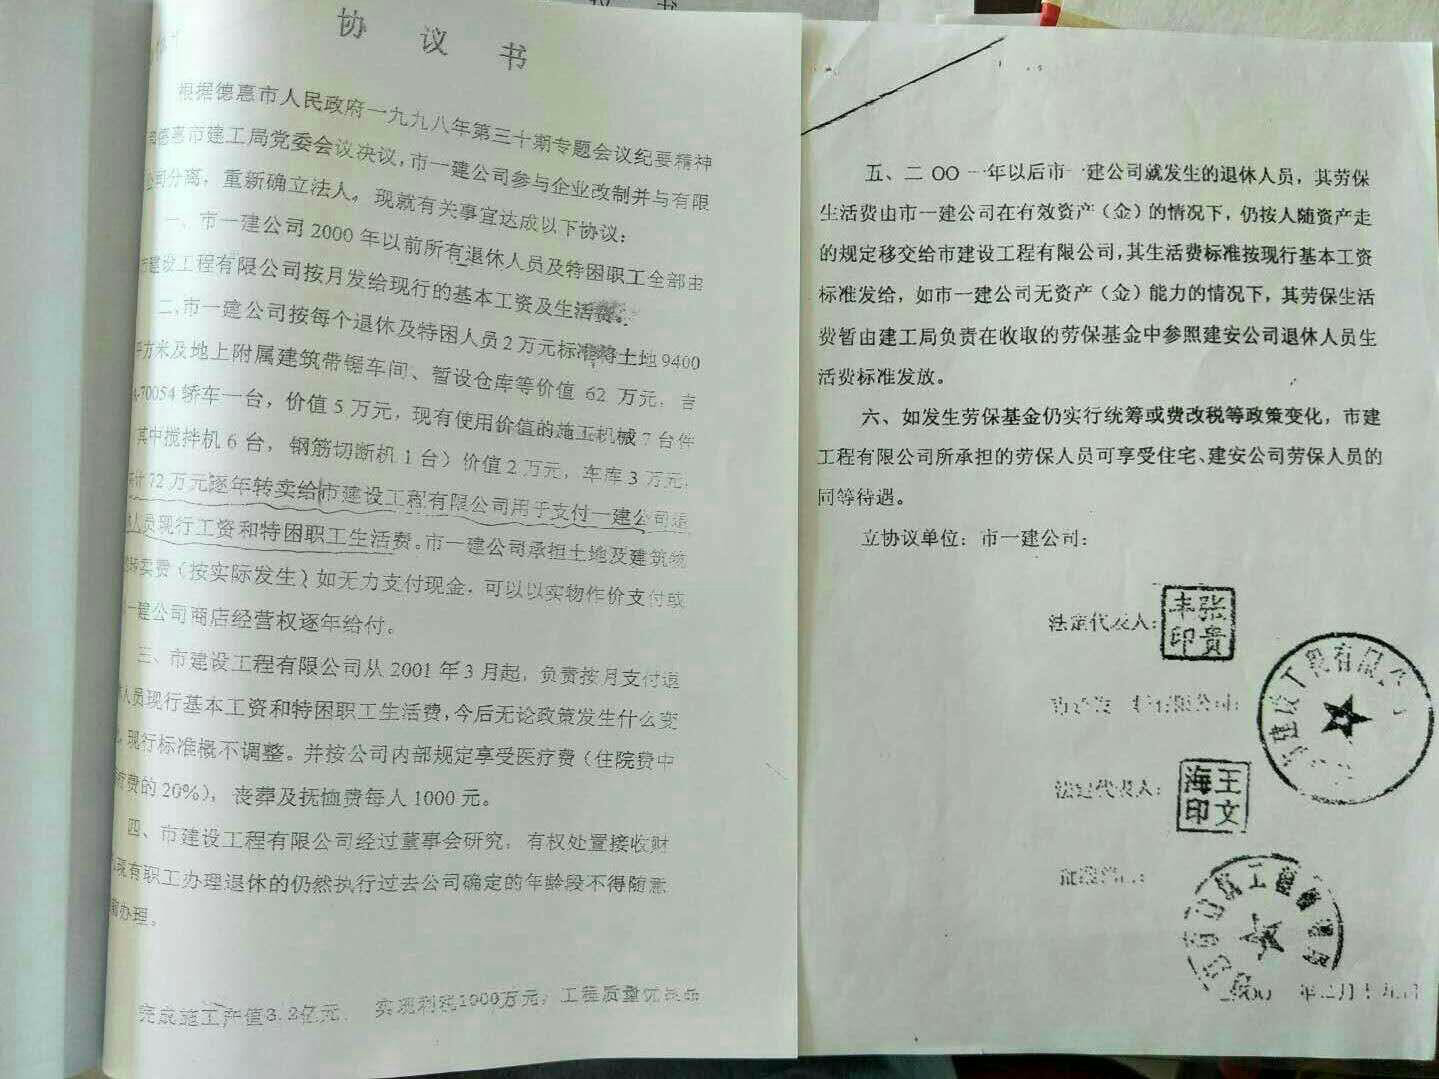 协 议 书
根据德惠市人民政府一九九八年第三十期专题会议纪要精神
德惠市建工局党委会议决议,市一建公司参与企业改制并与有限
公司分离,重新确立法人。现就有关事宜达成以下协议:
一、市一建公司2000年以前所有退休人员及特困职工全部由
建设工程有限公司按月发给现行的基本工资及生活费。
二、市一建公司按每个退休及特困人员2万元标准将土地9400
平方米及地上附属建筑带锯车间、暂设仓库等价值 62 万元,吉
-70054 轿车一台,价值5万元,现有使用价值的施工机械7台件
其中搅拌机6台,钢筋切断机1台)价值2万元,车库3万元,
计72万元逐年转卖给市建设工程有限公司用于支付一建公司退
人员现行工资和特困职工生活费。市一建公司承担土地及建筑物
转卖费(按实际发生)如无力支付现金,可以以实物作价支付或
一建公司商店经营权逐年给付。
三、市建设工程有限公司从2001年3月起,负责按月支付退
人员现行基本工资和特困职工生活费,今后无论政策发生什么变
现行标准概不调整。并按公司内部规定享受医疗费(住院费中
费的20%),丧葬及抚恤费每人1000元。
四、市建设工程有限公司经过董事会研究,有权处置接收财
现有职工办理退休的仍然执行过去公司确定的年龄段不得随意
办理。
完成施工产值3.2亿元, 实现利税1000万元,工程质量优良品
五、二OO一年以后市一建公司就发生的退休人员,其劳保
生活费由市一建公司在有效资产(金)的情况下,仍按人随资产走
的规定移交给市建设工程有限公司,其生活费标准按现行基本工资
标准发给,如市一建公司无资产(金)能力的情况下,其劳保生活
费暂由建工局负责在收取的劳保基金中参照建安公司退休人员生
活费标准发放。
六、如发生劳保基金仍实行统筹或费改税等政策变化,市建
工程有限公司所承担的劳保人员可享受住宅、建安公司劳保人员的
同等待遇。
立协议单位:市一建公司:
法定代表人:
张贵丰印
有限公司:
建设工程有限公
法定代表人:
王文海印
年二月十九日